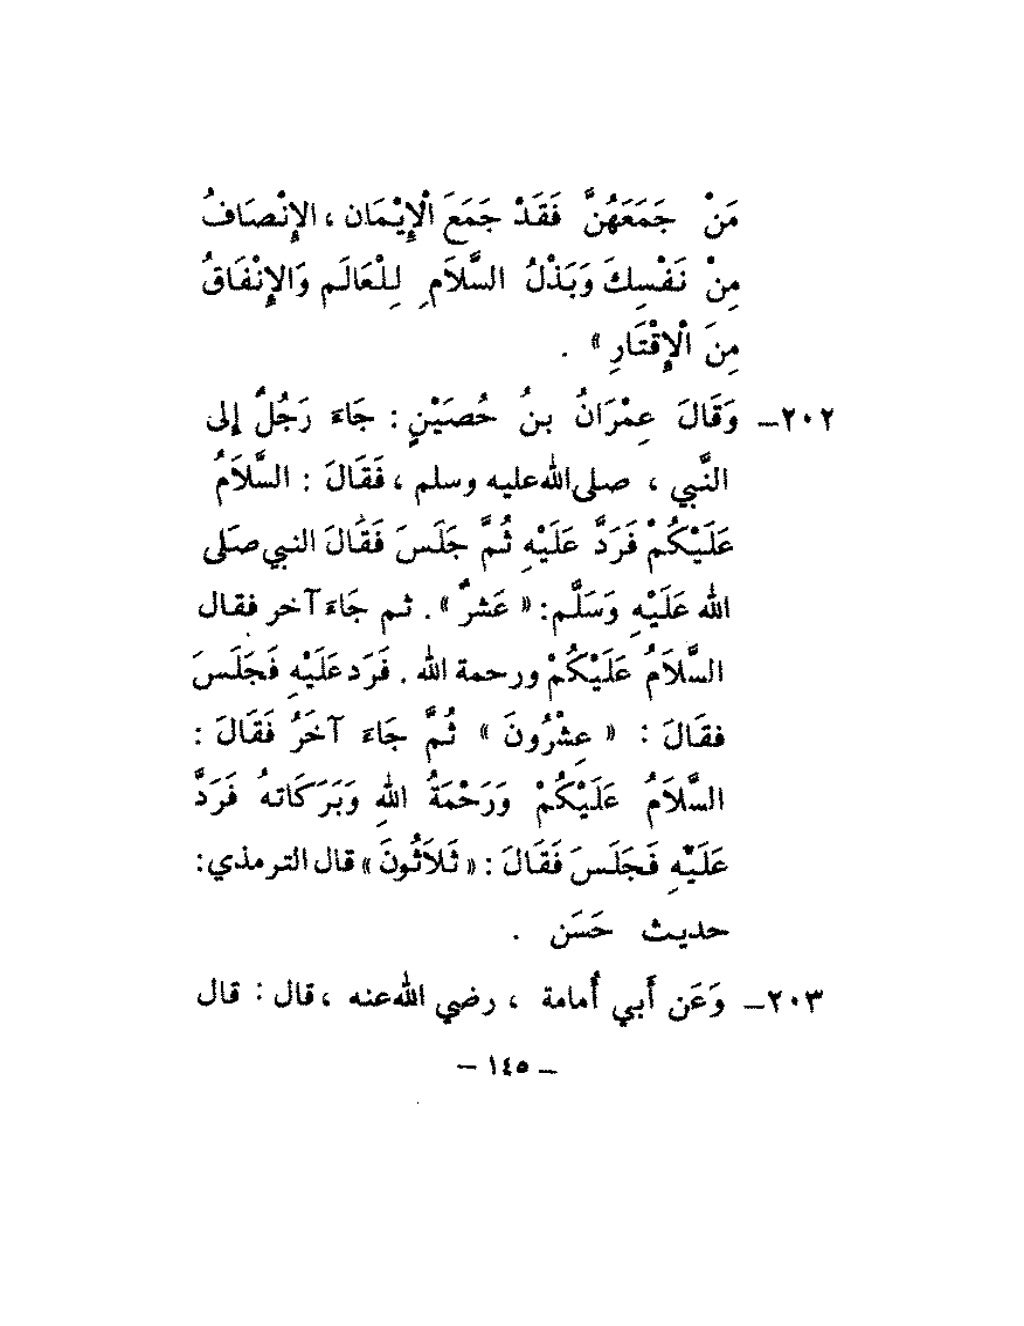 مَنْ جَمَعَهُنَّ فَقَدْ جَمَعَ الْإِيْمَان ، الإِنْصَافُ
مِنْ نَفْسِكَ وَبَذْلُ السَّلاَمِ لِلْعَالَمِ وَالإِنْفَاقُ
مِنَ الْإِقْتَارِ » .
٢٠٢ـ وَقَالَ عِمْرَانُ بنُ حُصَيْنٍ : جَاءَ رَجُلٌ إلى
النَّبي ، صلى الله عليه وسلم ، فَقَالَ : السَّلاَمُ
عَلَيْكُمْ فَرَدَّ عَلَيْهِ ثُمَّ جَلَسَ فَقَالَ النبي صَلى
الله عَلَيْهِ وَسَلَّم : « عَشرٌ » . ثم جَاءَ آخر فقال
السَّلاَمُ عَلَيْكُمْ ورحمة الله . فَرَد عَلَيْهِ فَجَلَسَ
فقَالَ : « عِشْرُونَ » ثُمَّ جَاءَ آخَرُ فَقَالَ :
السَّلاَمُ عَلَيْكُمْ وَرَحْمَةُ اللهِ وَبَرَكَاتهُ فَرَدَّ
عَلَيْهِ فَجَلَسَ فَقَالَ : « ثَلاَثُونَ » قال الترمذي :
حديث حَسَن .
٢٠٣ـ وَعَن أَبي أُمامة ، رضي الله عنه ، قال : قال
ـ ١٤٥ ـ